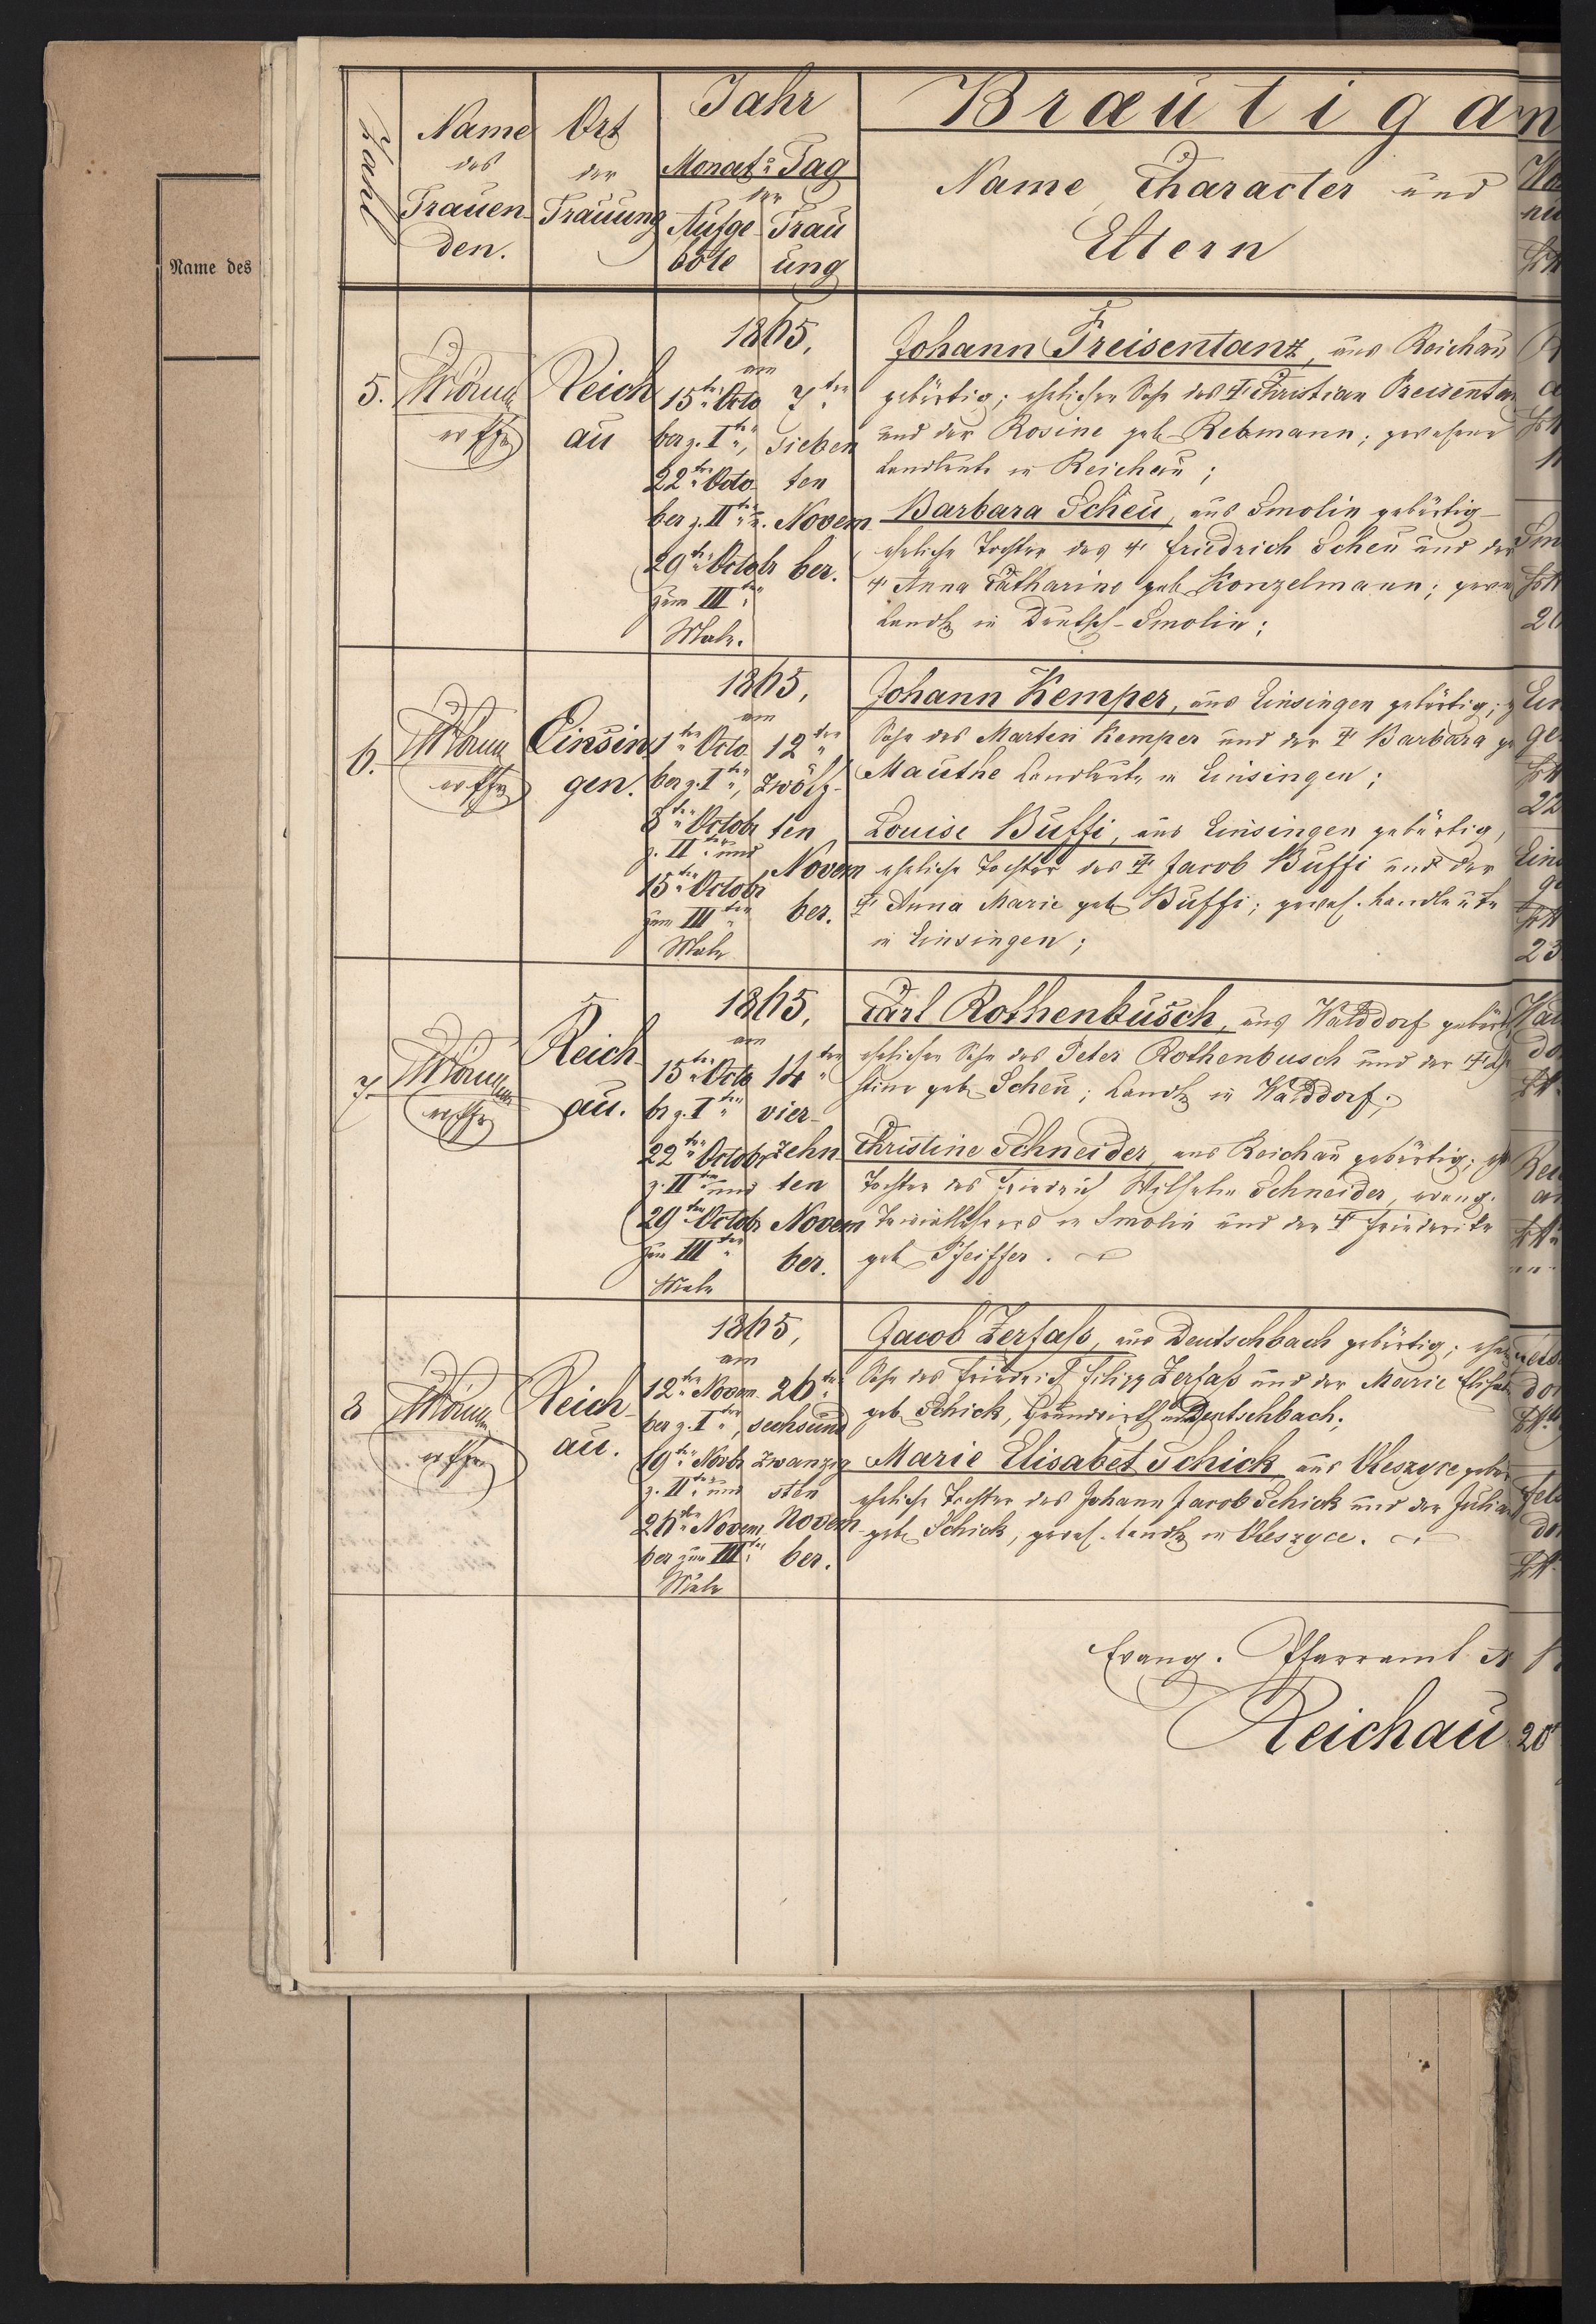 Name des
Zahl
Name
des
Trauen-
den.
Ort
der
Trauung
Jahr
Monat u. Tag
der
Aufge-
bote
Trau
ung
Bräutigam
Name, Character und
Eltern
5.
Reich
au
1865,
am
15ten Octo
ber z. Iten,
22ten Octo-
ber z. IIten u.
29ten Octobr
zum IIIten
Male.
7ten
sieben
ten
Novem
ber.
Johann Preisentanz, aus Reichau
gebürtig; ehelicher Sohn des † Christian Preisentan
und der Rosine geb. Rebmann; gewesene
Landleute in Reichau;
Barbara Scheu, aus Smolin gebürtig
eheliche Tochter des † Friedrich Scheu und der
† Anna Catharine geb. Konzelmann; gewe
Landl. in Deutsch-Smolin;
6.
Einsin
gen.
1865,
am
1ten Octo
ber z. Iten,
8ten Octobr
z. IIten und
15ten Octobr
zum IIIten
Male
12ten
zwölf-
ten
Novem
ber.
Johann Kemper, aus Einsingen gebürtig;
Sohn des Martin Kemper und der † Barbara ge
Mauthe Landleute in Einsingen;
Louise Buffi, aus Einsingen gebürtig,
eheliche Tochter des † Jacob Buffi und der
† Anna Marie geb. Buffi; gewes. Landleute
in Einsingen;
7.
Reich
au.
1865,
am
15ten Octo
br z. Iten
22ten Octobr
z. IIten und
29ten Octobr
zum IIIten
Male
14ten
vier-
zehn
ten
Novem
ber.
Carl Rothenbusch, aus Walddorf gebürt
ehelicher Sohn des Peter Rothenbusch und der † Chri
stine geb. Scheu; Landl. in Walddorf;
Christine Schneider, aus Reichau gebürtig; ehe
Tochter des Friedrich Wilhelm Schneider, evang.
Triviallehrers in Smolin und der † Friederike
geb. Pfeiffer.
8
Reich-
au.
1865,
am
12ten Novem
ber z. Iten,
19ten Novbr
z. IIten und
26ten Novem
ber zum IIIten
Male
26ten
sechsund
zwanzig
sten
Novem
ber.
Jacob Zerfaß, aus Deutschbach gebürtig; ehel
Sohn des Friedrich Filipp Zerfaß und der Marie Elisabet
geb. Schick, Grundwirth in Deutschbach;
Marie Elisabet Schick aus Oleszyce gebür
eheliche Tochter des Johann Jacob Schick und der Julian
geb. Schick, gewes. Landl. in Oleszyce.
Evang. Pfarramt
Reichau